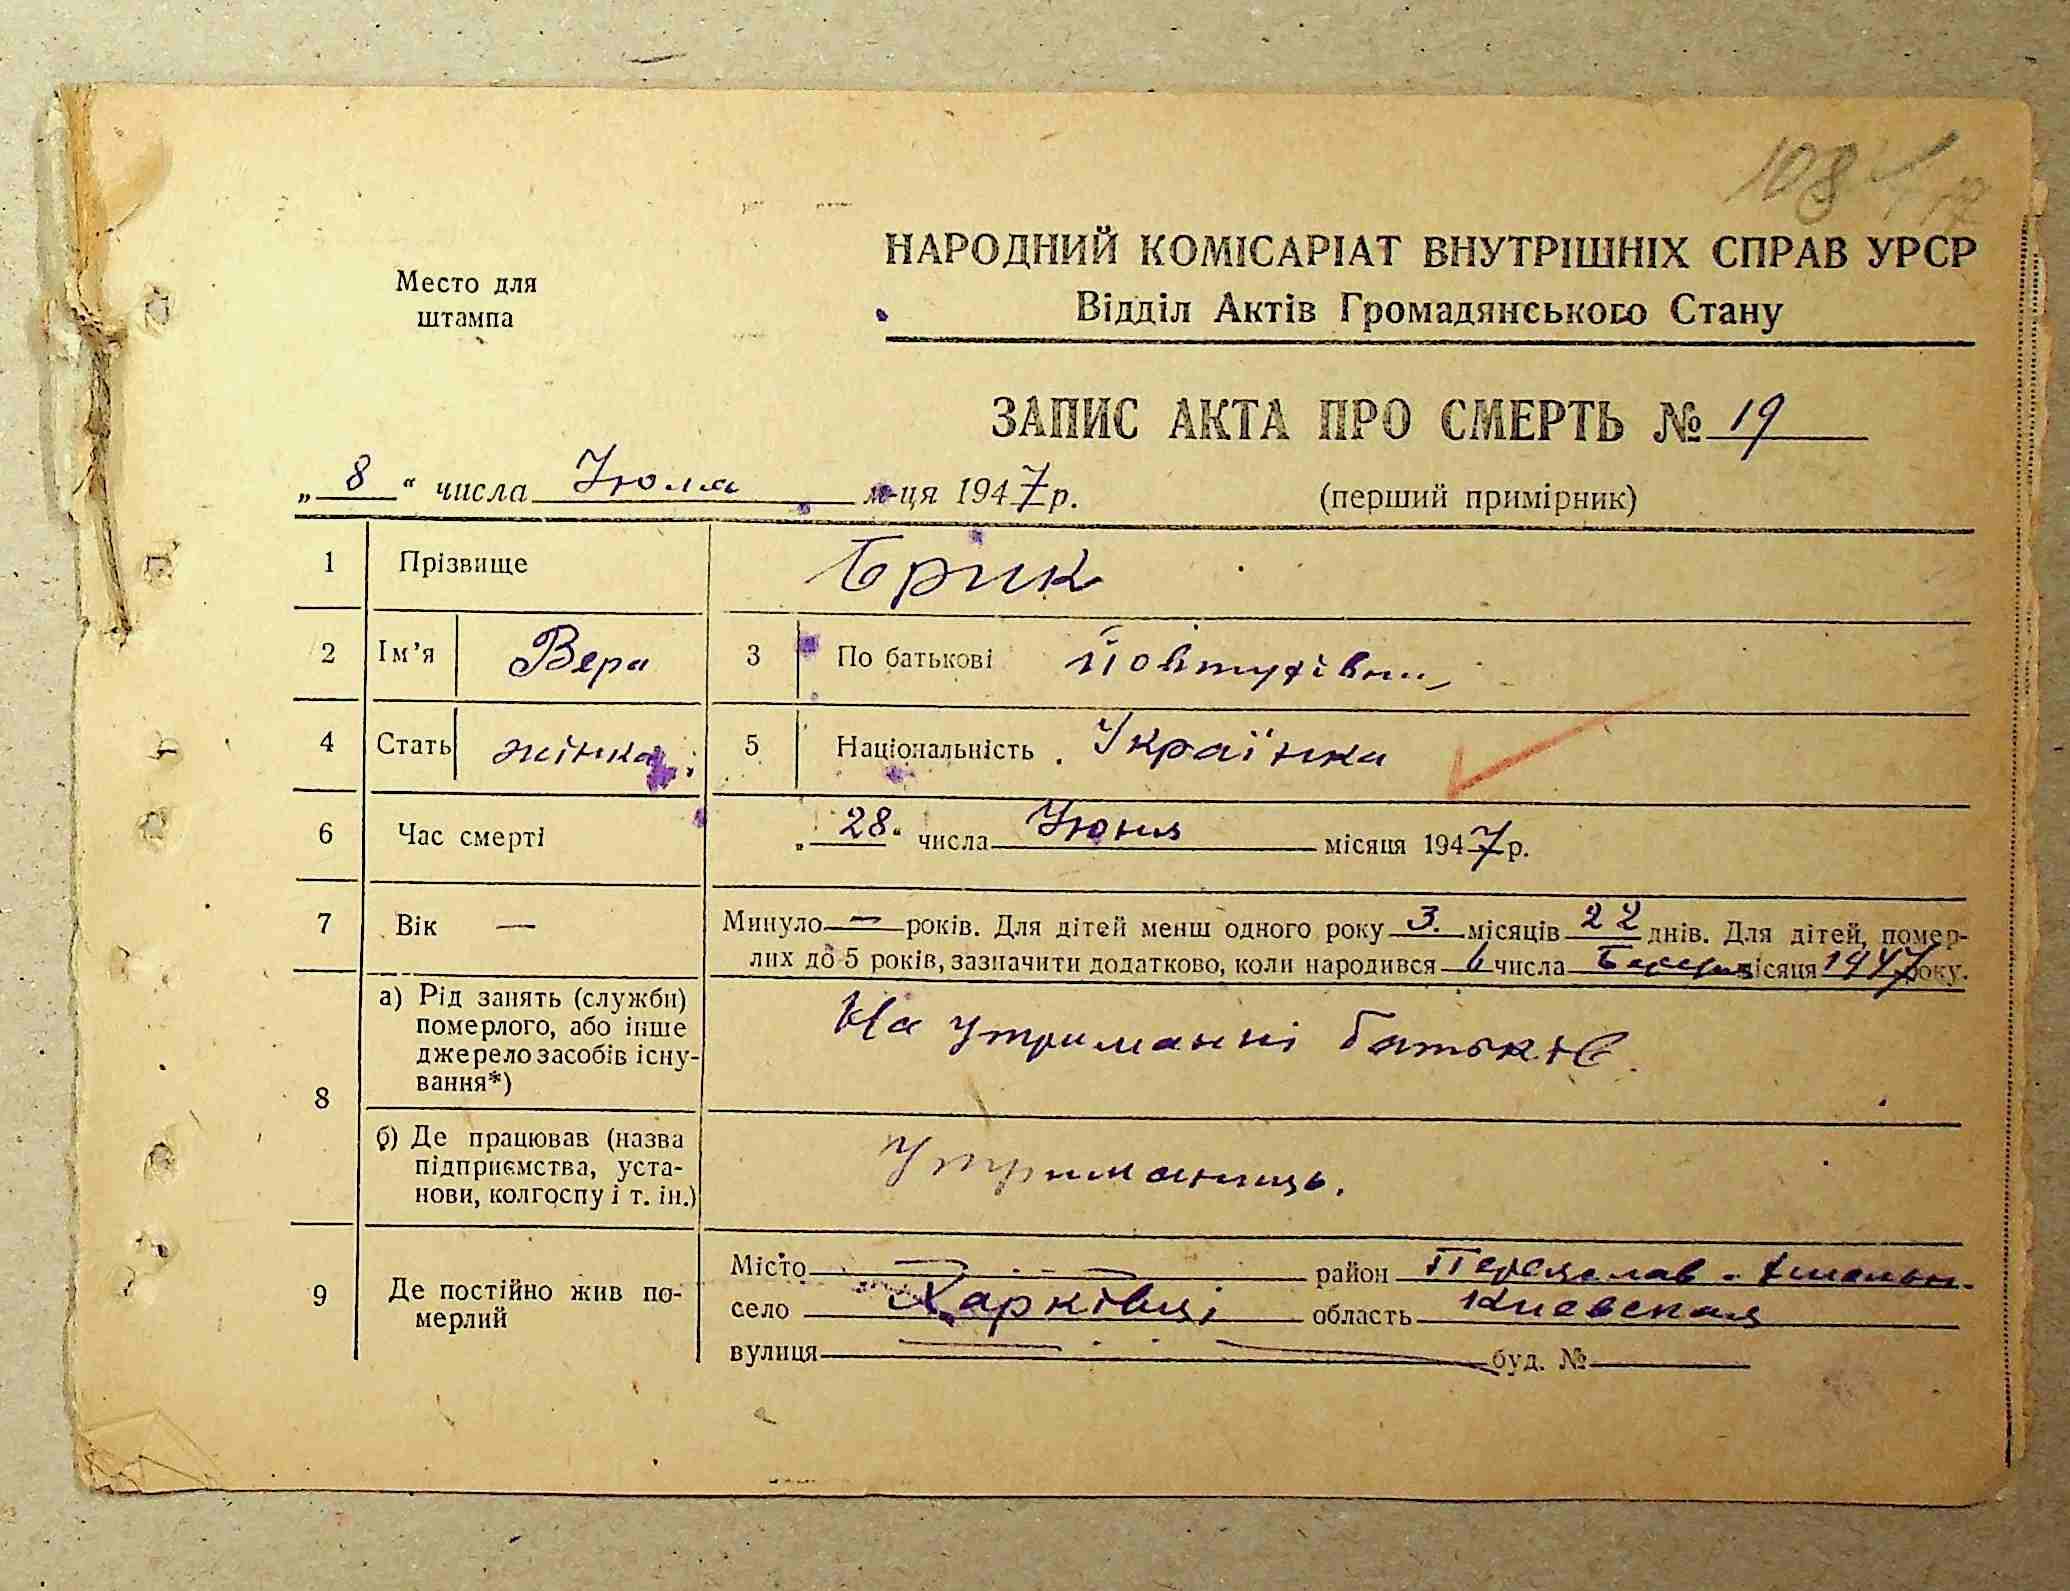 108
НАРОДНИЙ КОМІСАРІАТ ВНУТРІШНІХ СПРАВ УРСР
Место для
штампа
Відділ Актів Громадянського Стану
ЗАПИС АКТА ПРО СМЕРТЬ № 19
„ 8 “ числа Июля м-ця 1947 р. (перший примірник)
1 Прізвище Брик
2 Ім’я Вера 3 По батькові
4 Стать жінка 5 Національність Українка
6 Час смерті „ 28 “ числа Июня місяця 1947 р.
7 Вік — Минуло — років. Для дітей менш одного року 3 місяців 22 днів. Для дітей, помер-
лих до 5 років, зазначити додатково, коли народився 6 числа місяця 1947 року.
8 а) Рід занять (служби)
померлого, або інше
джерело засобів існу-
вання*) На утриманні батьків.
б) Де працював (назва
підприємства, уста-
нови, колгоспу і т. ін.) Утриманець.
9 Де постійно жив по-
мерлий
Місто — район Переяслав-Хмельн.
село Харківці область Киевская
вулиця — буд. №